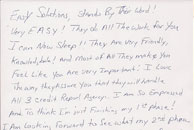 Easy Solutions, Stands By Their Word!
Very EASY! They do All The Work, for You
I can Now Sleep! They are Very Friendly,
Knowledgable! and Most of All They make you
Feel Like You are Very Important. I Love
The way They Assure You that They will Handle
All 3 Credit Report Agency. I am So Impressed
And to think I'm just Finishing my 1st phase!
I am Looking Forward To See what my 2nd phase